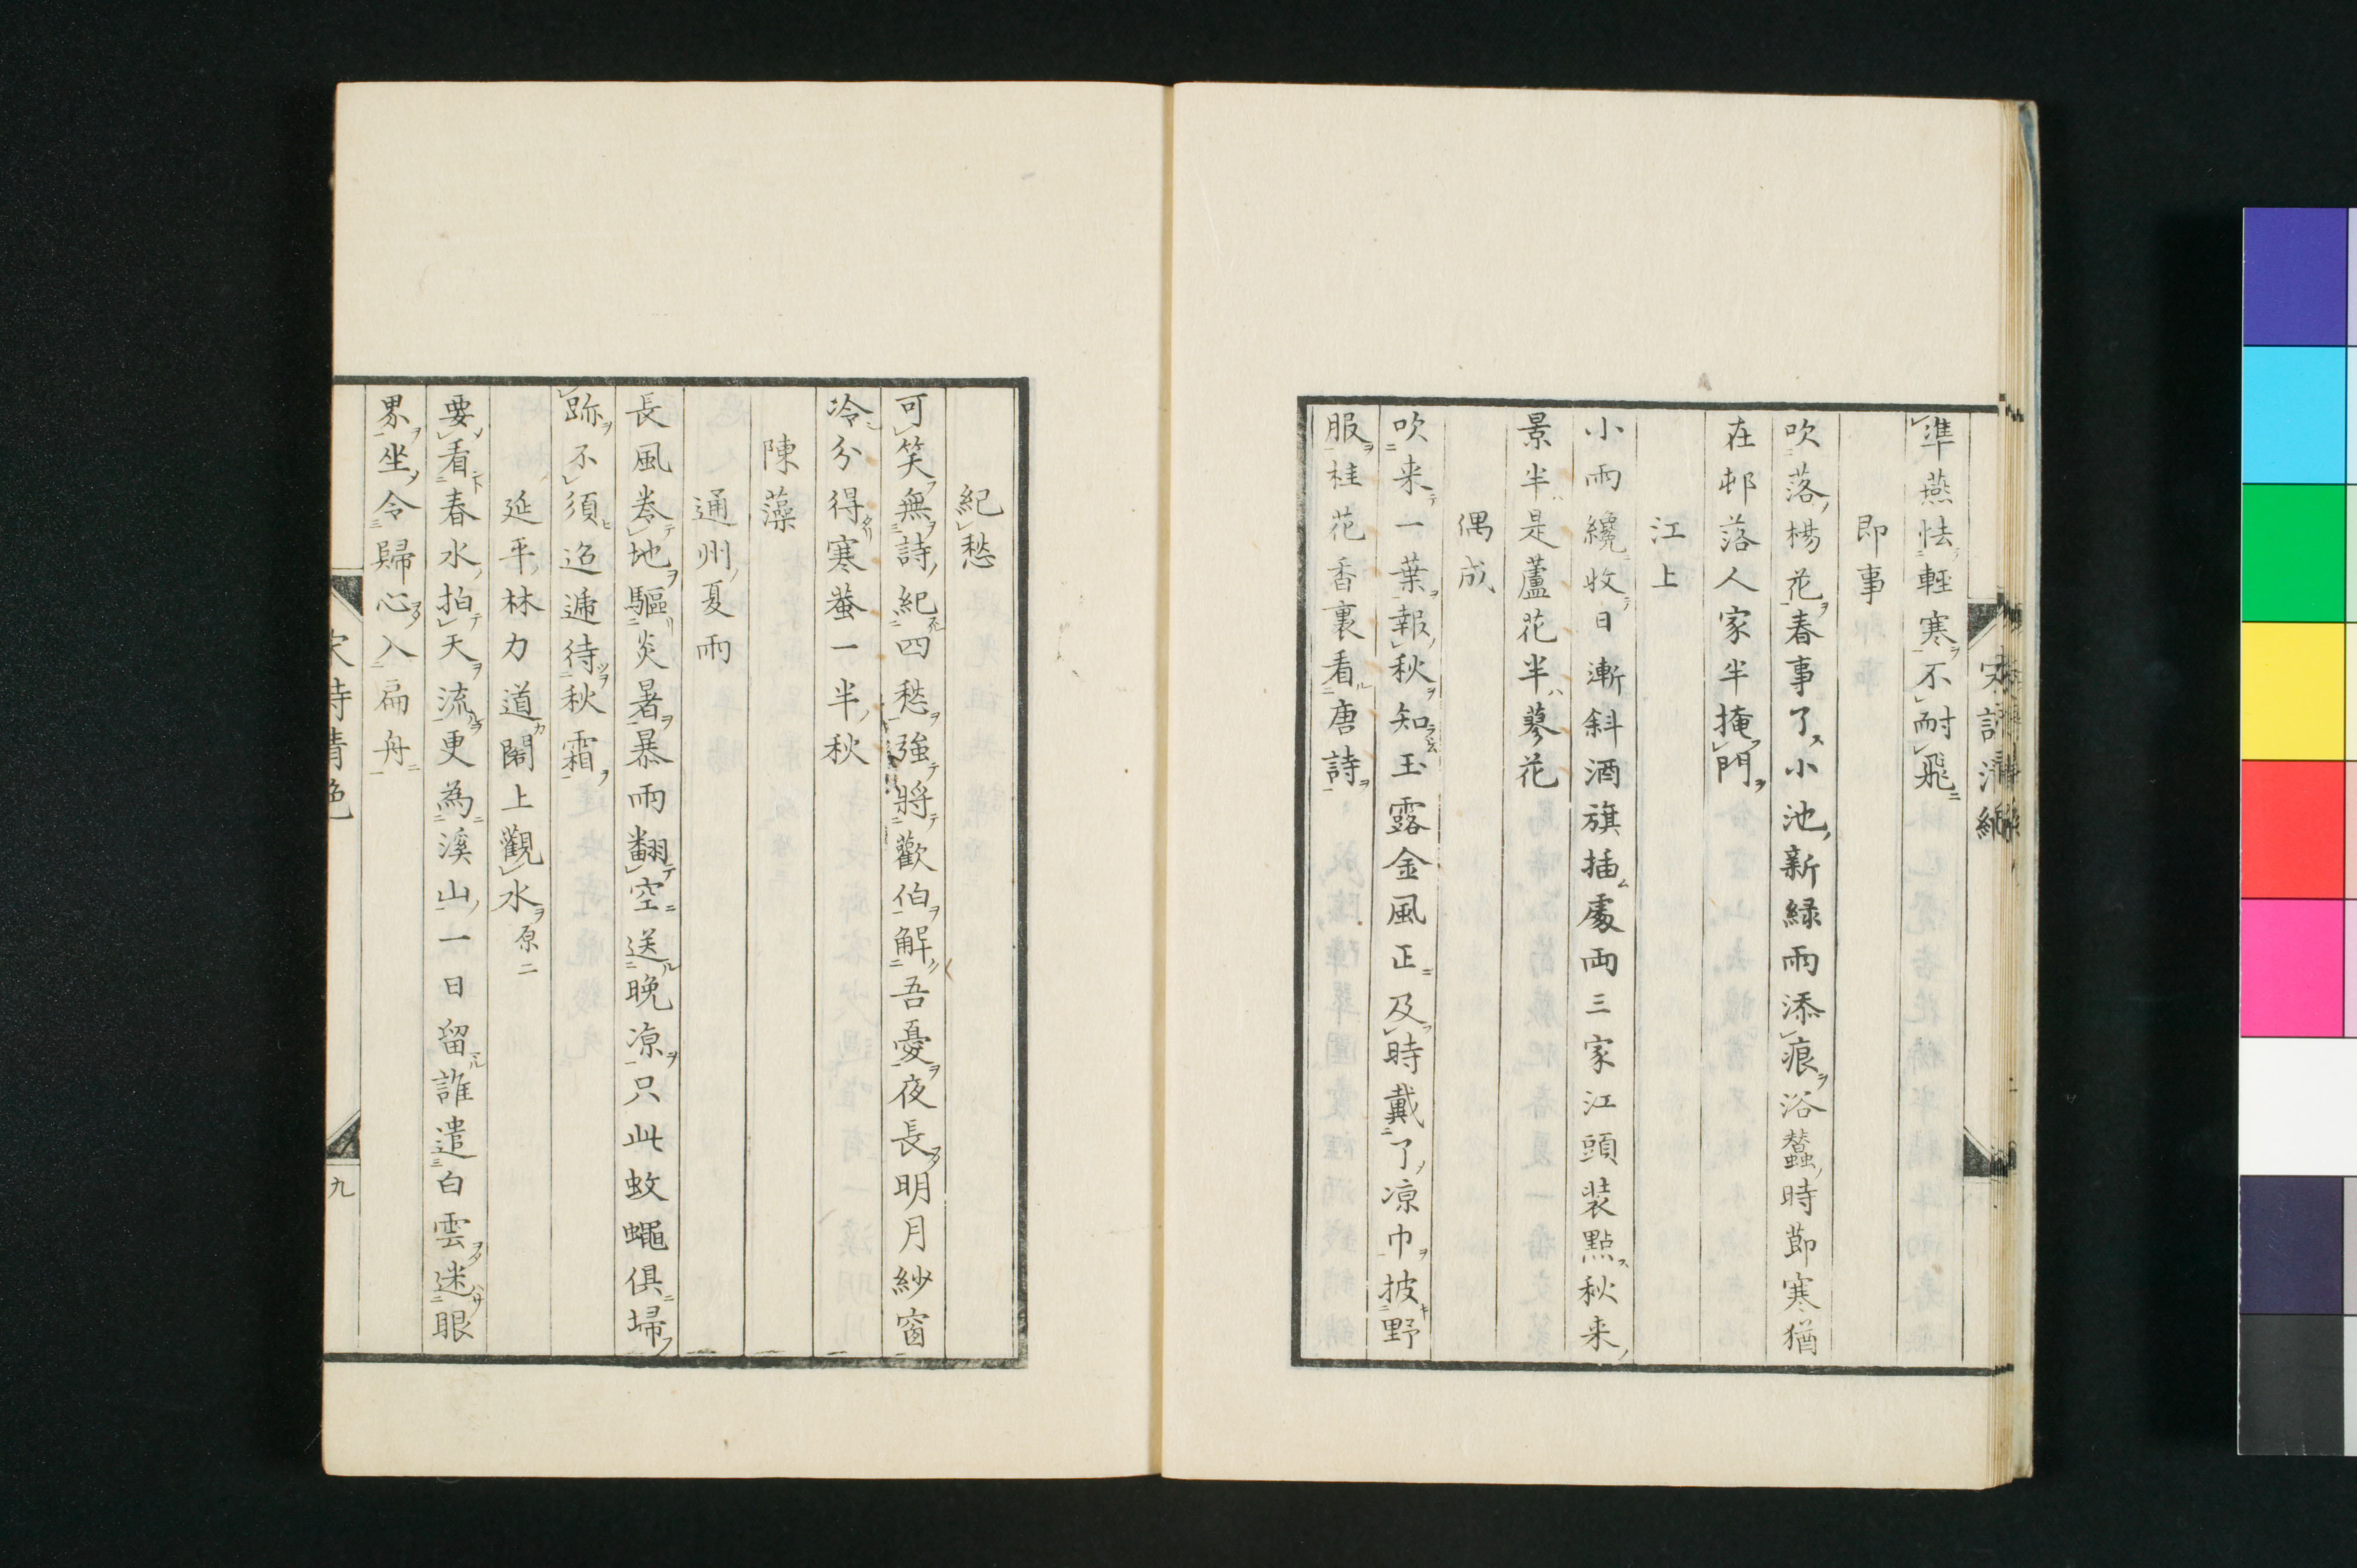 準燕怯輕寒不耐飛
即事
吹落楊花春事了小池新緑雨添痕浴蠶時節寒猶
在邨落人家半掩門
江上
小雨纔收日漸斜酒旗插處両三家江頭装點秋来
景半是蘆花半蓼花
偶成
吹来一葉報秋知玉露金風正及時戴了凉巾披野
服桂花香裏看唐詩
紀愁
可笑無詩紀四愁強將歡伯解吾憂夜長明月紗窗
冷分得寒螀一半秋
陳藻
通州夏雨
長風卷地驅炎暑暴雨翻空送晩凉只此蚊蠅俱埽
跡不須迢遞待秋霜
延平林力道閣上觀水原二
要看春水拍天流更為溪山一日留誰遣白雲迷眼
界坐令歸心入扁舟
九